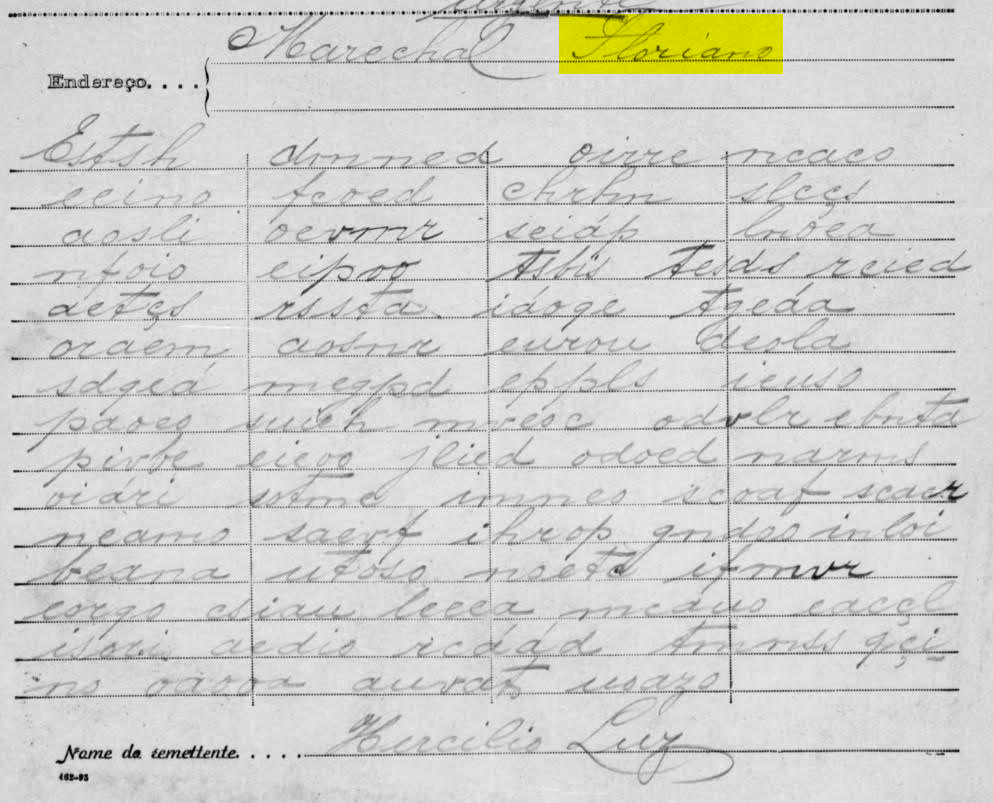 urgente
Marechal Floriano
Endereço....
Estsh donned oirre ncaco
eeino fcoed chrhm slces
aosli oevmr seiáp lnoea
nfoio eipoo tsbis tesds reied
aetçs rssta idoge tgeáa
oraem aosnr eurou deola
sdgeá megpd eppls ieuso
paoeo suieh mvesc odvlr ebnta
eieoo jlied odoed narms
oiári sotme imneo scoaf scaer
neamo saerf ihrop gndoo inloi
beana utoso noete ifmvr
eorgo csiau lecea meauo eaeçl
isoei aedio rcdád tmnss qçi-
no oaroa auvat uoazo
Nome do remettente.... Hercilio Luz
462-93